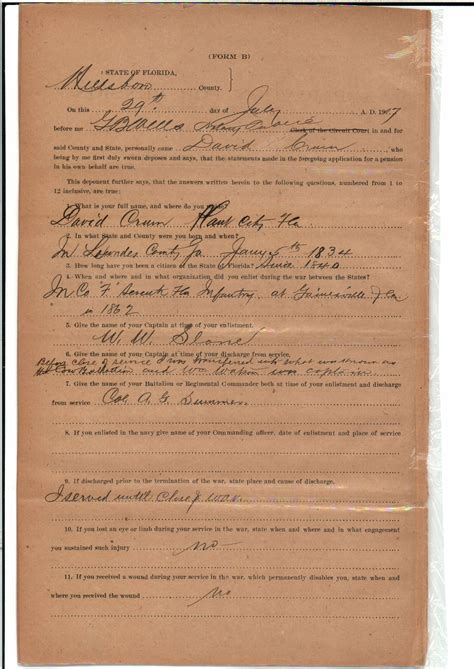 (FORM B)
STATE OF FLORIDA,
Hillsboro County.
On this 29th day of July A. D. 1907
before me G B Wells Notary Public Clerk of the Circuit Court in and for
said County and State, personally came David Crum who
being by me first duly sworn deposes and says, that the statements made in the foregoing application for a pension
in his own behalf are true.
This deponent further says, that the answers written herein to the following questions, numbered from 1 to
12 inclusive, are true:
1. What is your full name, and where do you
David Crum Plant City Fla
2. In what State and County were you born and when?
In Lowndes County Ga Jany 6th 1834
3. How long have you been a citizen of the State of Florida? Since 1840
4. When and where and in what organization did you enlist during the war between the States?
In Co "F" Seventh Fla Infantry at Gainesville Fla
in 1862
5. Give the name of your Captain at time of your enlistment.
W. W. Slone
6. Give the name of your Captain at time of discharge from service.
Before close of service I was transferred into what was known as
the Cow Battalion and was captain
7. Give the name of your Battalion or Regimental Commander both at time of your enlistment and discharge
from service Col A G Summer
8. If you enlisted in the navy give name of your Commanding officer, date of enlistment and place of service
9. If discharged prior to the termination of the war, state place and cause of discharge.
I served until close of war
10. If you lost an eye or limb during your service in the war, state when and where and in what engagement
you sustained such injury no
11. If you received a wound during your service in the war, which permanently disables you, state when and
where you received the wound no